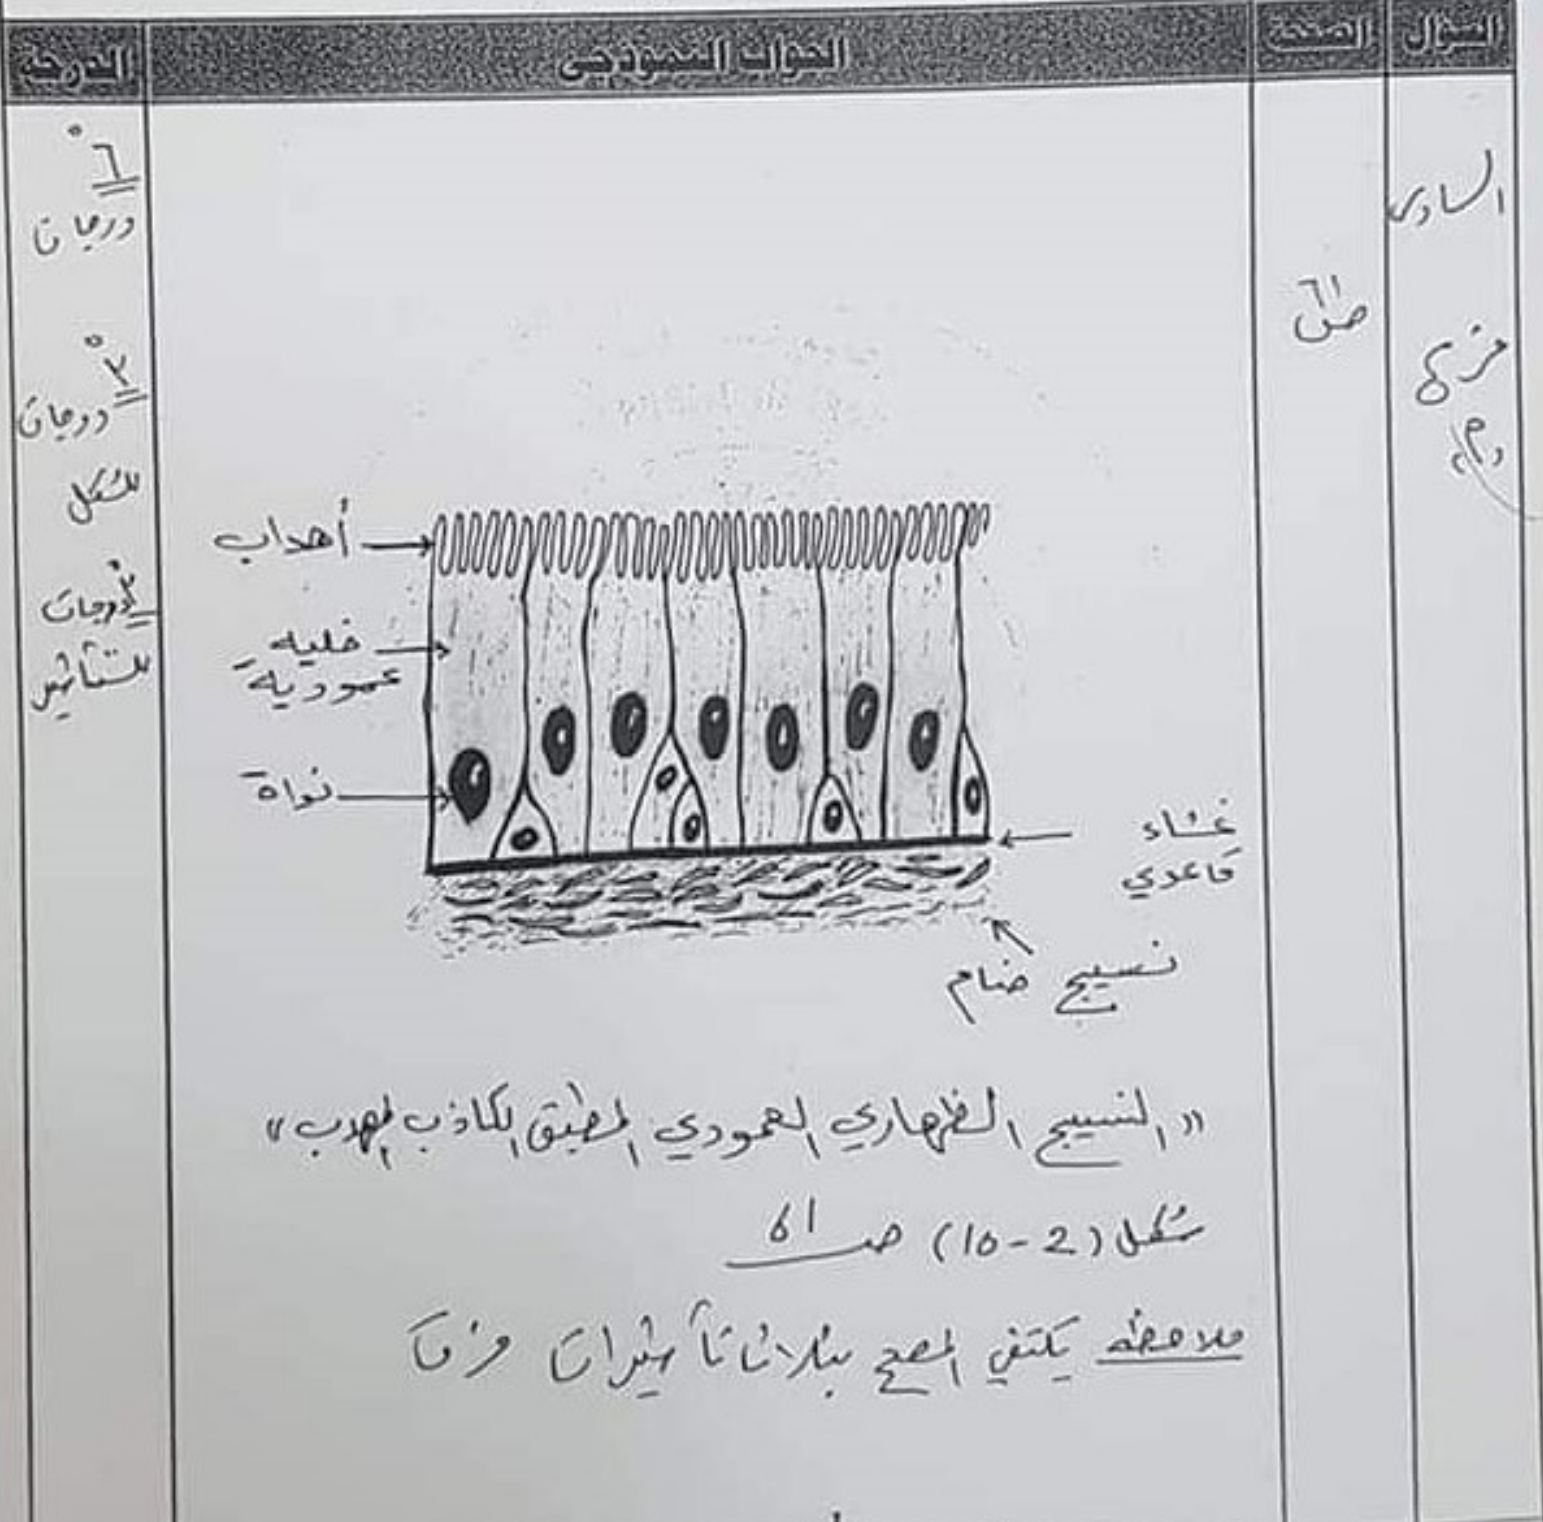 السؤال
الصفحة
الجواب النموذجي
الدرجة
السادس
فرع
ص٦١
٦
درجات
٣
درجات
للشكل
٣ درجات
للتأشير
أهداب
خلية
عمودية
نواة
غشاء
قاعدي
نسيج ضام
"النسيج الظهاري العمودي المطبق الكاذب المهدب"
شكل (2-15) ص ٦١
ملاحظة يكتفي المصحح بثلاث تأشيرات فقط